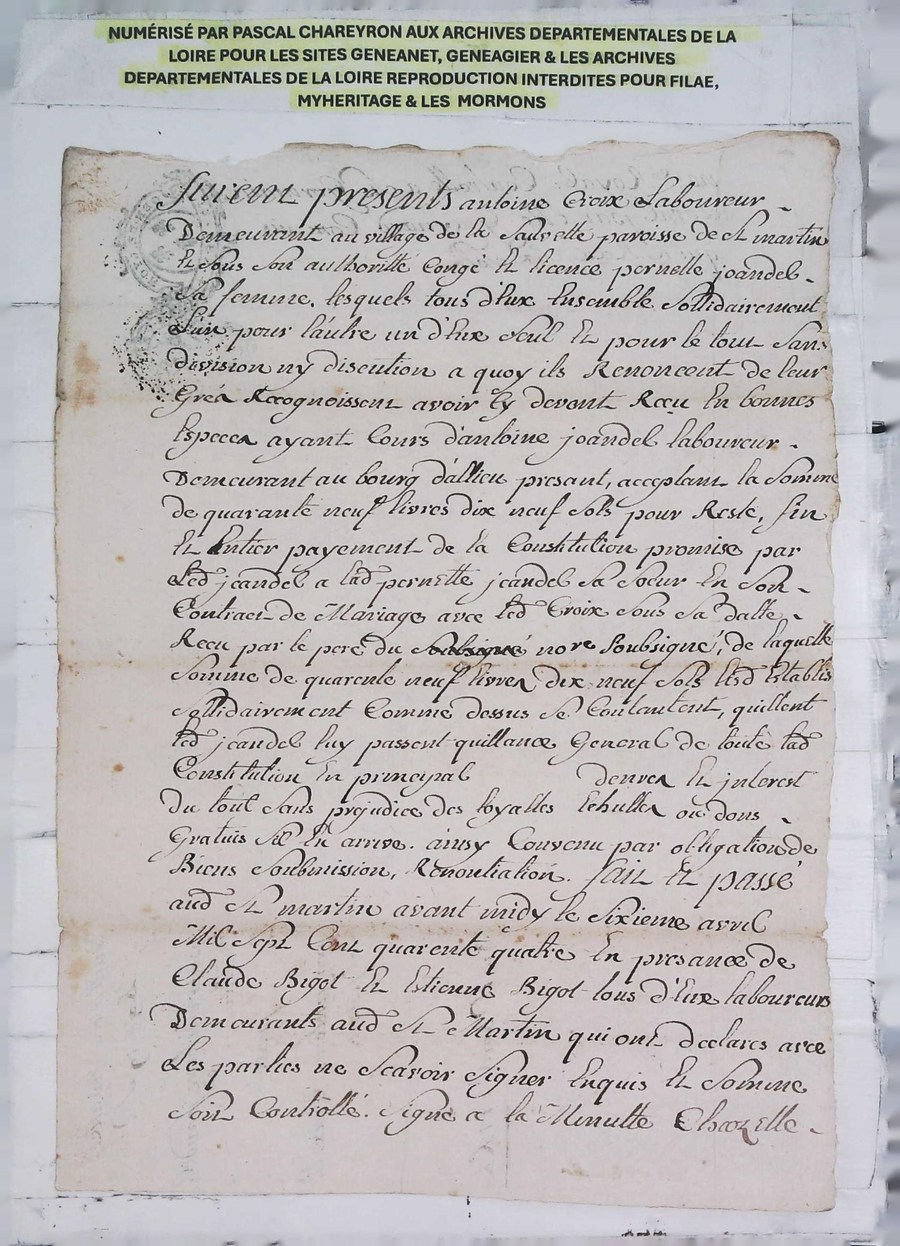 NUMÉRISÉ PAR PASCAL CHAREYRON AUX ARCHIVES DEPARTEMENTALES DE LA
LOIRE POUR LES SITES GENEANET, GENEAGIER & LES ARCHIVES
DEPARTEMENTALES DE LA LOIRE REPRODUCTION INTERDITES POUR FILAE,
MYHERITAGE & LES MORMONS
furent presents antoine Croix Laboureur
Demeurant au village de la Sauvette paroisse de St martin
Et Sous Son authoritté Congé Et licence pernette joandel
Sa femme, lesquels tous d'Eux Ensemble Sollidairement
L'un pour l'autre un d'Eux Seul Et pour le tout Sans
division ny discution a quoy ils Renoncent de leur
Gréz Recognoissent avoir Cy devant Reçu En bonnes
Especes ayant Cours d'antoine joandel laboureur
Demeurant au bourg d'allieu presant, acceptant la Somme
de quarante neuf livres dix neuf Sols pour Reste, fin
Et Entier payement de la Constitution promise par
Led joandel a lad pernette joandel Sa Soeur En Son
Contract de Mariage avec led Croix Sous Sa datte
Recu par le pere du notre Soubsigné, de laquelle
Somme de quarente neuf livres dix neuf Sols lesd Establis
Sollidairement Comme dessus Se Contantent, quittent
led joandel luy passent quittance General de toute lad
Constitution En principal denres Et interest
Du tout Sans prejudice des loyalles Echuttes ou dons
Gratuis Sil En arrive. ainsy Convenu par obligation de
Biens Soubmission, Renontiation. fait Et passé
aud St martin avant midy le Sixieme avril
Mil Sept Cent quarente quatre En presance de
Claude Bigot Et Estienne Bigot tous d'Eux laboureurs
Demeurants aud St Martin qui ont declares avec
Les parties ne Scavoir Signer Enquis Et Somme
Soit Controllé. Signe a la Minutte Chazelle